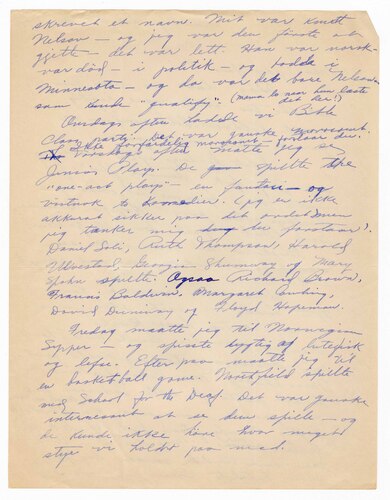 skrevet et navn. Mit var Knute
Nelson — og jeg var den første at
gjette — det var lett Han var norsk —
var død — i politik — og bodde i
Minnesota — og da var det bare Nelson
som kunde "qualify"
Onsdags aften hadde vi Bible
Class party. Det var ganske morosomt.
ikke forferdelig morosomt — forstaar du.
Torsdags aften maatte jeg se
Junior Plays. De spillte tre
"one-act plays" — en — og
to komedier. (jeg er ikke
akkurat sikker paa det ordet men
jeg tænker mig du forstaar).
Daniel Soli, Ruth Thompson, Harold
Ulvestad, Georgia Shumway og Mary
John spillte. Ogsaa Richard Brown,
Francis Baldwin, Margaret
David Dunway og Floyd Hageman.
Fredag maatte jeg til Norwegian
Supper — og spiste lutefisk
og lefse. Efter paa maatte jeg til
en basketball game. Northfield spillte
med School for the Deaf. Det var ganske
interessant at se dem spille — og
de kunde ikke høre hvor meget
styr vi holdt paa med.